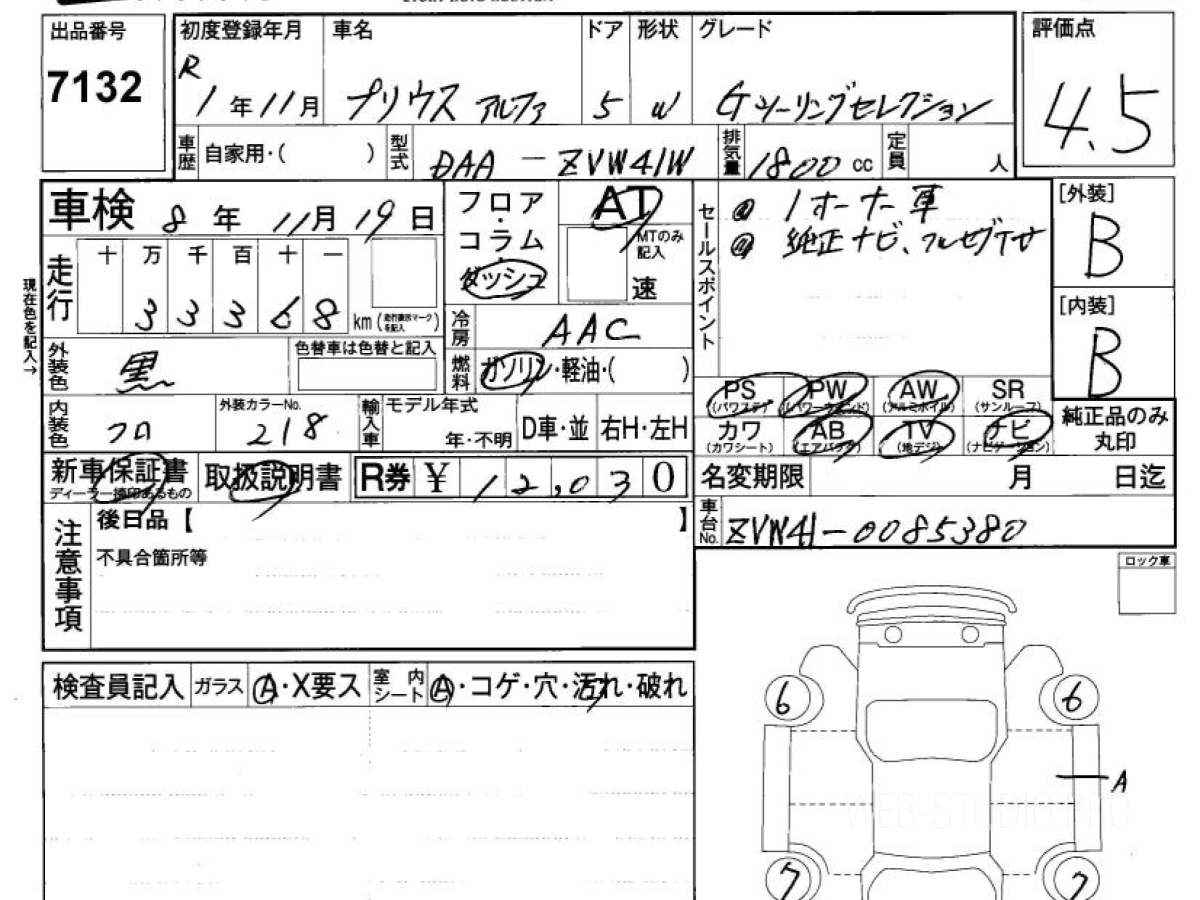 出品番号 初度登録年月 車名 ドア 形状 グレード 評価点
7132 R 1年11月 プリウス アルファ 5 W Gツーリングセレクション 4.5
車歴 自家用・( ) 型式 DAA-ZVW41W 排気量 1800 cc 定員 人
車検 8年 11月 19日 フロア・コラム・ダッシュ AT MTのみ記入 速
セールスポイント @ 1オーナー車
@ 純正ナビ、フルセグTV
[外装] B
[内装] B
現在色を記入→
走行 十 万 千 百 十 一
3 3 3 6 8 km (走行表示マークを記入)
冷房 AAC
外装色 黒 色替車は色替と記入 燃料 ガソリン・軽油・( )
PS (パワステ) PW (パワーウインド) AW (アルミホイル) SR (サンルーフ)
カワ (カワシート) AB (エアバッグ) TV (地デジ) ナビ (ナビゲーション)
純正品のみ丸印
内装色 クロ 外装カラーNo. 218 輸入車 モデル年式 年・不明 D車・並 右H・左H
新車保証書 ディーラー捺印あるもの 取扱説明書 R券 ¥ 12,030
名変期限 月 日迄
車台No. ZVW41-0085380
注意事項 後日品【 】
不具合箇所等
ロック車
検査員記入 ガラス A・X要ス 室内シート A・コゲ・穴・汚れ・破れ
6 6
A
WEB-STUDIO.PRO
7 7